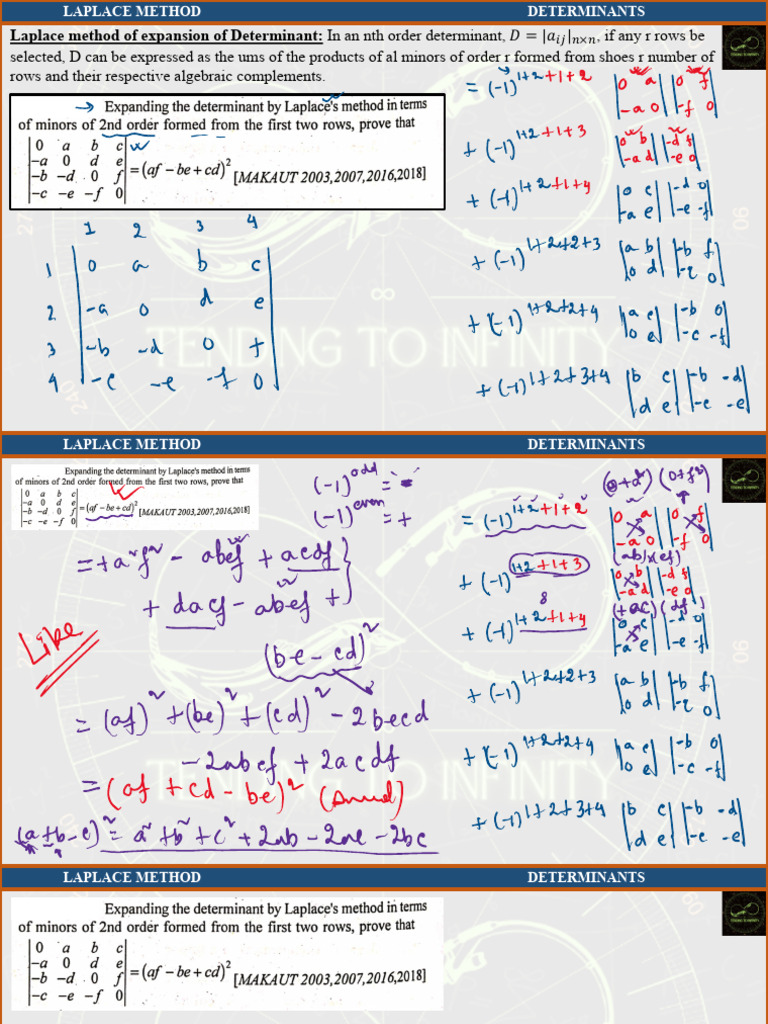 LAPLACE METHOD DETERMINANTS
Laplace method of expansion of Determinant: In an nth order determinant, D = |a_ij|_n×n, if any r rows be
selected, D can be expressed as the ums of the products of al minors of order r formed from shoes r number of
rows and their respective algebraic complements.
Expanding the determinant by Laplace's method in terms
of minors of 2nd order formed from the first two rows, prove that
|0 a b c|
|-a 0 d e|
|-b -d 0 f|
|-c -e -f 0|
= (af − be + cd)² [MAKAUT 2003,2007,2016,2018]
1 2 3 4
1 |0 a b c|
2 |-a 0 d e|
3 |-b -d 0 f|
4 |-c -e -f 0|
= (-1)^1+2+1+2 |0 a; -a 0| |0 f; -f 0|
+ (-1)^1+2+1+3 |0 b; -a d| |-d f; -e 0|
+ (-1)^1+2+1+4 |0 c; -a e| |-d 0; -e -f|
+ (-1)^1+2+2+3 |a b; 0 d| |-b f; -c 0|
+ (-1)^1+2+2+4 |a c; 0 e| |-b 0; -c -f|
+ (-1)^1+2+3+4 |b c; d e| |-b -d; -c -e|
TENDING TO INFINITY
LAPLACE METHOD DETERMINANTS
Expanding the determinant by Laplace's method in terms
of minors of 2nd order formed from the first two rows, prove that
|0 a b c|
|-a 0 d e|
|-b -d 0 f|
|-c -e -f 0|
= (af − be + cd)² [MAKAUT 2003,2007,2016,2018]
(-1)^odd = -
(-1)^even = +
= +a²f² - abef + acdf
+ dacf - abef +
(be - cd)²
Like
= (af)² + (be)² + (cd)² - 2becd
- 2abef + 2acdf
= (af + cd - be)²
(a+b-c)² = a² + b² + c² + 2ab - 2ac - 2bc
(0+a²) (0+f²)
= (-1)^1+2+1+2 |0 a; -a 0| |0 f; -f 0|
(ab)(ef)
+ (-1)^1+2+1+3 |0 b; -a d| |-d f; -e 0|
8
(+ac)(df)
+ (-1)^1+2+1+4 |0 c; -a e| |-d 0; -e -f|
+ (-1)^1+2+2+3 |a b; 0 d| |-b f; -c 0|
+ (-1)^1+2+2+4 |a c; 0 e| |-b 0; -c -f|
+ (-1)^1+2+3+4 |b c; d e| |-b -d; -c -e|
TENDING TO INFINITY
LAPLACE METHOD DETERMINANTS
Expanding the determinant by Laplace's method in terms
of minors of 2nd order formed from the first two rows, prove that
|0 a b c|
|-a 0 d e|
|-b -d 0 f|
|-c -e -f 0|
= (af − be + cd)² [MAKAUT 2003,2007,2016,2018]